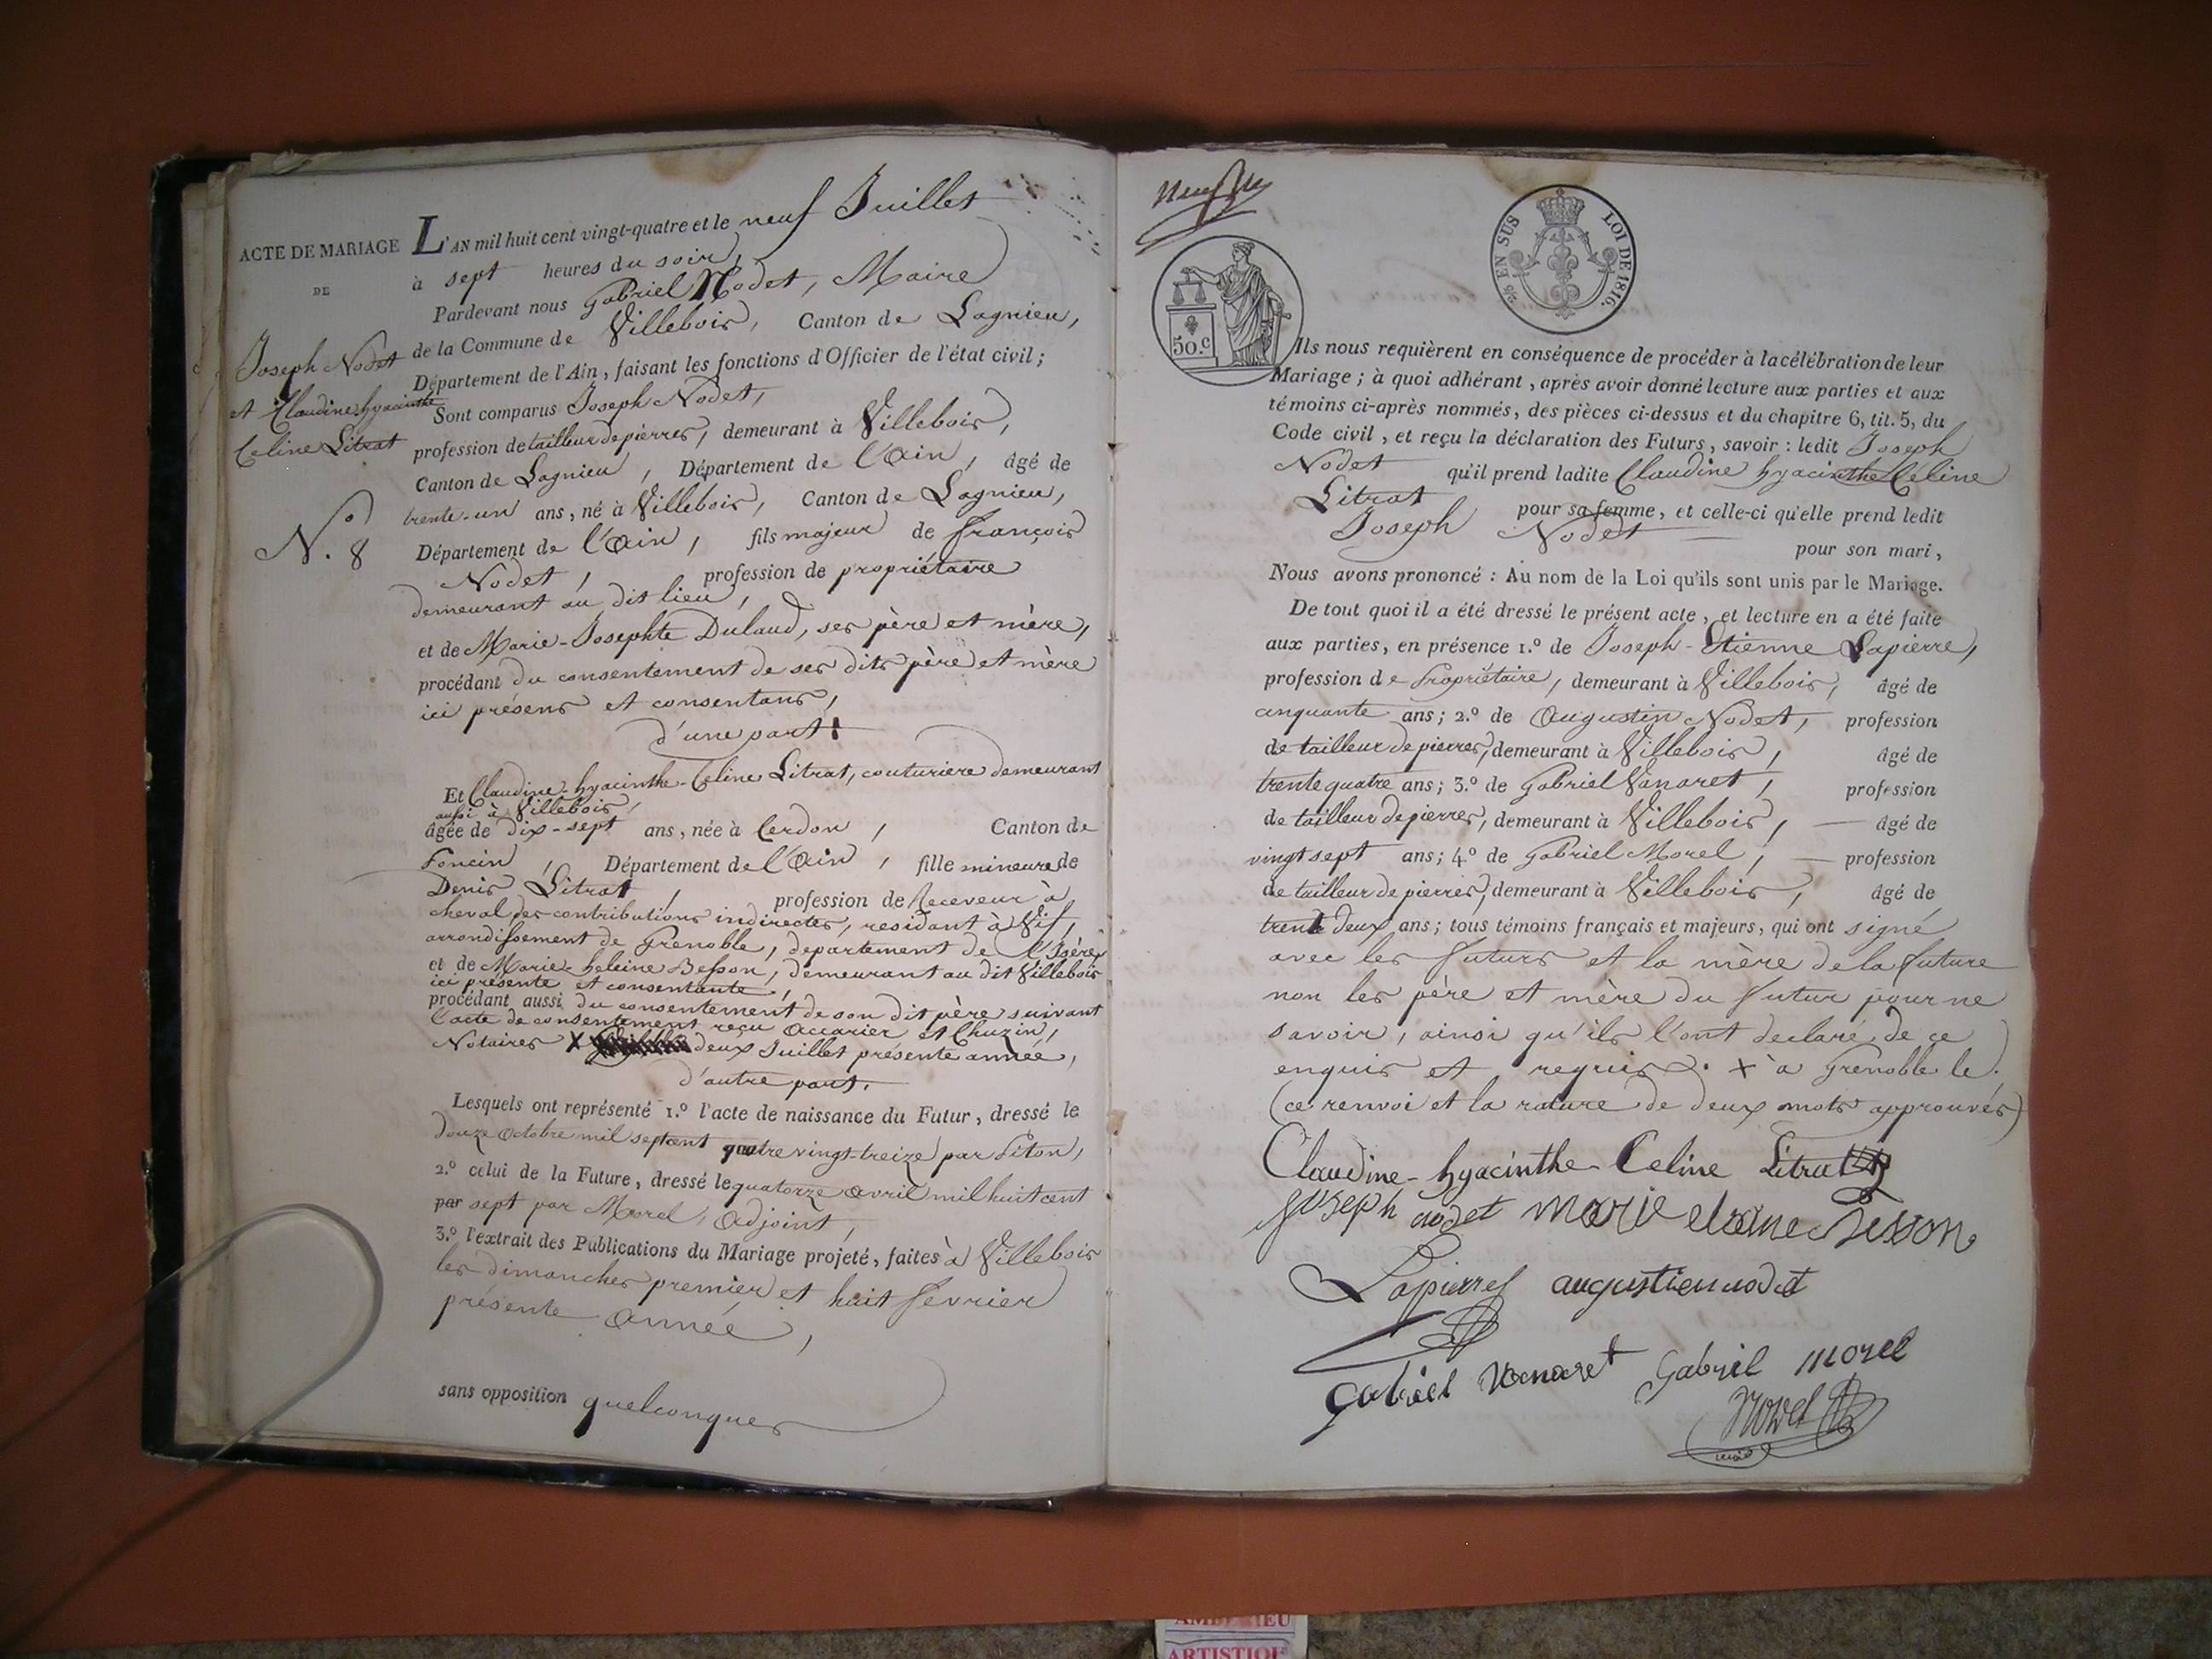 ACTE DE MARIAGE
DE
Joseph Nodet
et Claudine hyacinthe
Celine Litrat
N.º 8
L'AN mil huit cent vingt-quatre et le neuf Juillet
à sept heures du soir,
Pardevant nous Gabriel Nodet, Maire
de la Commune de Villebois, Canton de Lagnieu,
Département de l'Ain, faisant les fonctions d'Officier de l'état civil;
Sont comparus Joseph Nodet,
profession de tailleur de pierres, demeurant à Villebois,
Canton de Lagnieu, Département de l'Ain, âgé de
trente-un ans, né à Villebois, Canton de Lagnieu,
Département de l'Ain, fils majeur de François
Nodet, profession de propriétaire
demeurant au dit lieu,
et de Marie-Josephte Dulaud, ses père et mère,
procédant du consentement de ses dits père et mère
ici présens et consentans,
d'une part.
Et Claudine-hyacinthe-Celine Litrat, couturiere demeurant
aussi à Villebois,
âgée de dix-sept ans, née à Cerdon, Canton de
Poncin, Département de l'Ain, fille mineure de
Denis Litrat, profession de Receveur à
cheval des contributions indirectes, residant à Vif,
arrondissement de Grenoble, departement de l'Isère,
et de Marie-heleine Besson, demeurant au dit Villebois
ici présente et consentante,
procédant aussi du consentement de son dit père suivant
l'acte de consentement reçu Accarier et Chuzin,
Notaires X deux Juillet présente année,
d'autre part.
Lesquels ont représenté 1.º l'acte de naissance du Futur, dressé le
douze octobre mil septcent quatre vingt-treize par Liton,
2.º celui de la Future, dressé le quatorze avril mil huit cent
par sept par Morel, adjoint,
3.º l'extrait des Publications du Mariage projeté, faites à Villebois
les dimanches premier et huit fevrier
présente année,
sans opposition quelconques
50.c
EN SUS
LOI DE 1816.
Ils nous requièrent en conséquence de procéder à la célébration de leur
Mariage; à quoi adhérant, après avoir donné lecture aux parties et aux
témoins ci-après nommés, des pièces ci-dessus et du chapitre 6, tit. 5, du
Code civil, et reçu la déclaration des Futurs, savoir: ledit Joseph
Nodet qu'il prend ladite Claudine hyacinthe Céline
Litrat pour sa femme, et celle-ci qu'elle prend ledit
Joseph Nodet pour son mari,
Nous avons prononcé: Au nom de la Loi qu'ils sont unis par le Mariage.
De tout quoi il a été dressé le présent acte, et lecture en a été faite
aux parties, en présence 1.º de Joseph-Etienne Lapierre,
profession de Propriétaire, demeurant à Villebois, âgé de
cinquante ans; 2.º de Augustin Nodet, profession
de tailleur de pierres, demeurant à Villebois, âgé de
trente quatre ans; 3.º de Gabriel Vanaret, profession
de tailleur de pierres, demeurant à Villebois, âgé de
vingt sept ans; 4.º de Gabriel Morel, profession
de tailleur de pierres, demeurant à Villebois, âgé de
trente deux ans; tous témoins français et majeurs, qui ont signé
avec les futurs et la mère de la future
non les père et mère du futur pour ne
savoir, ainsi qu'ils l'ont declaré de ce
enquis et requis. X à Grenoble le.
(ce renvoi et la rature de deux mots approuvés)
Claudine-hyacinthe-Celine Litrat
joseph nodet marie elaine Besson
Lapierre augustien nodet
gabriel vanaret Gabriel morel
Nodet